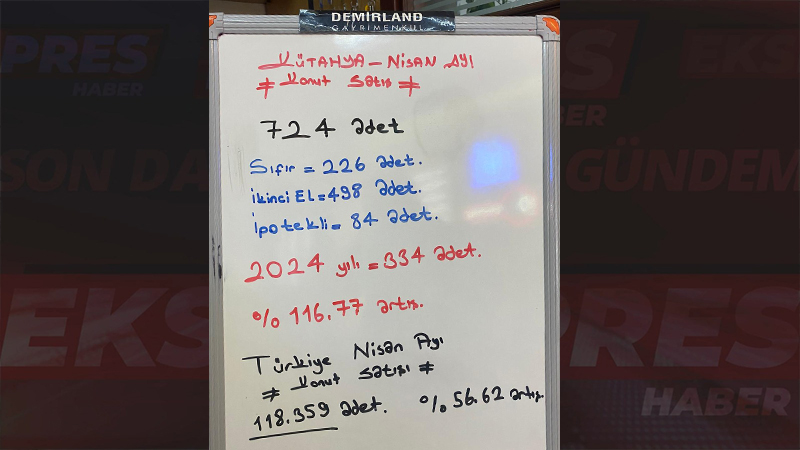 DEMIRLAND
GAYRIMENKUL
KÜTAHYA - NİSAN AYI
≠ Konut Satış ≠
724 adet
Sıfır = 226 adet.
İkinci EL = 498 adet.
İpotekli = 84 adet.
2024 yılı = 334 adet.
% 116.77 artış.
Türkiye Nisan Ayı
≠ Konut Satışı ≠
118.359 adet. % 56.62 artış.
PRES
HABER
SON DA
EKS
EKS
BER
GÜNDEM
PRES
HABER